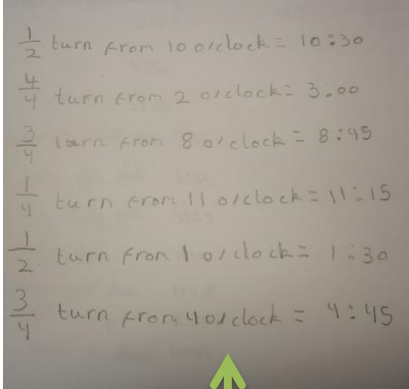 1/2 turn from 10 o'clock = 10:30
4/4 turn from 2 o'clock = 3:00
3/4 turn from 8 o'clock = 8:45
1/4 turn from 11 o'clock = 11:15
1/2 turn from 1 o'clock = 1:30
3/4 turn from 4 o'clock = 4:45